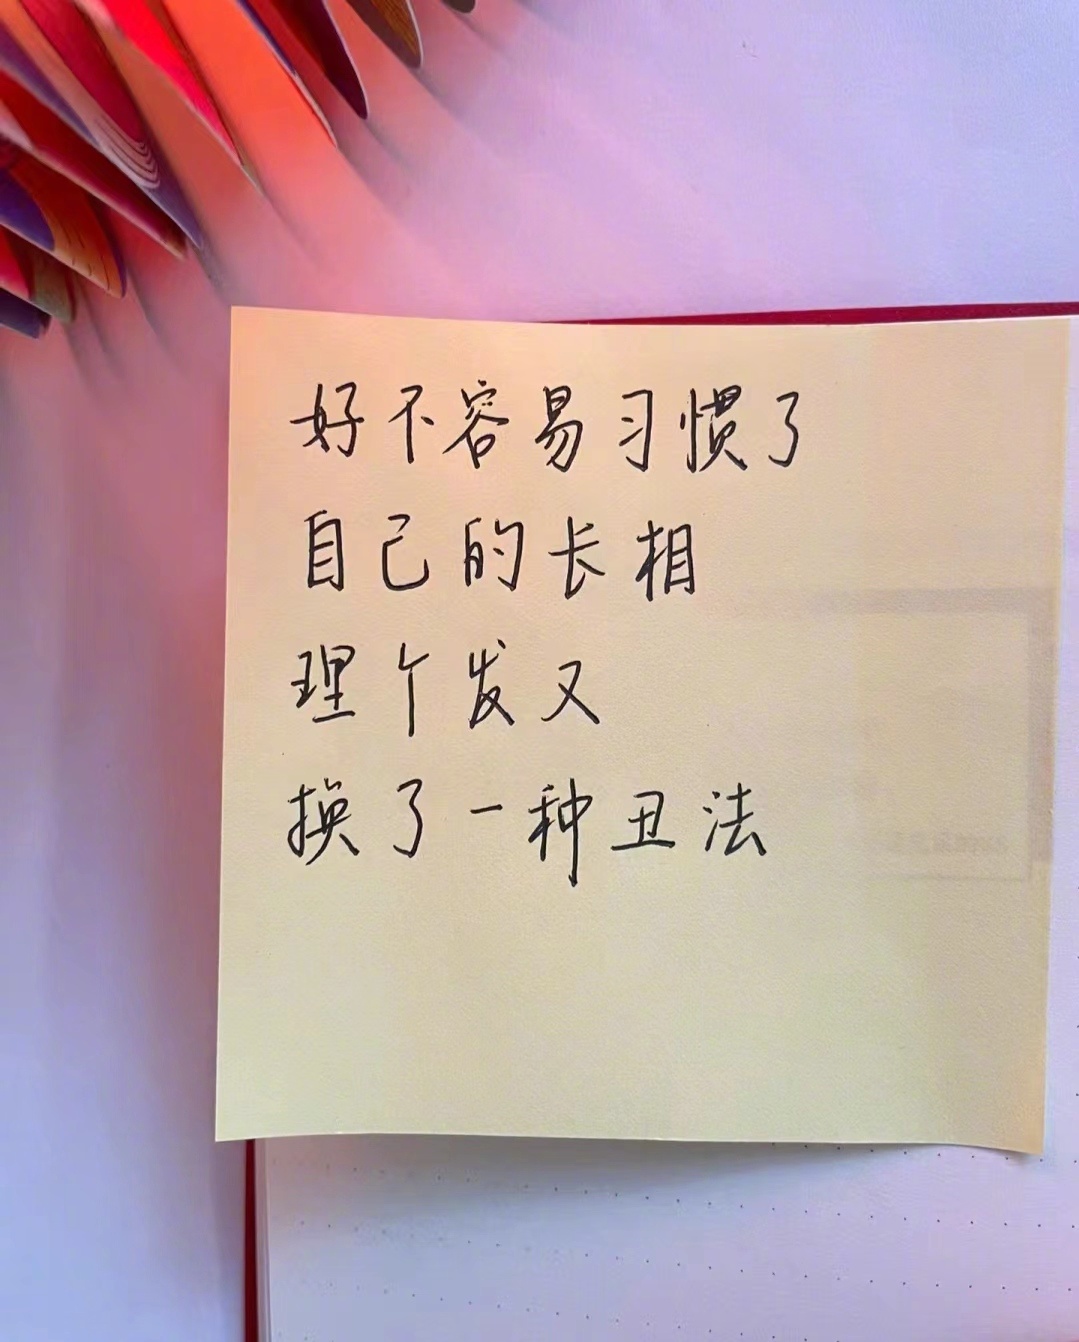 好不容易习惯了
自己的长相
理个发又
换了一种丑法